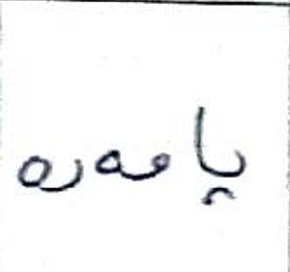 پامەرە